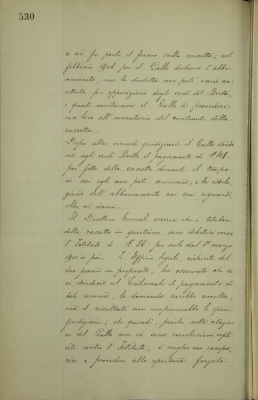 530
a cui fu posto il fermo sulla cassetta; nel
febbraio 1908 poi il Gallo disdisse l'abbo-
namento, ma la disdetta non potè essere ac-
cettata per opposizione degli eredi del Botta,
i quali invitarono il Gallo a procedere
con loro all'inventario del contenuto della
cassetta.
Dopo altre vicende giudiziarie il Gallo chiede
ora agli eredi Botta il pagamento di
per fitto della cassetta durante il tempo
in cui egli non potè servirsene, e la risolu-
zione dell'abbonamento in ciò riguardi
oltre ai danni.
Il Direttore Generale osserva che i titolari
della cassetta in questione sono debitori verso
l'Istituto di L. 36. per nolo dal 1° marzo
in poi. L'Ufficio legale, richiesto del
suo parere in proposito, ha osservato che se
si chiedesse al Tribunale il pagamento di
tale somma, la domanda sarebbe accolta,
ma il risultato non compenserebbe le spese
giudiziarie; che quindi, poichè nelle
ni del Gallo non vi sono conclusioni espli-
cite contro l'Istituto, è meglio non compa-
rire e procedere alla apertura forzata